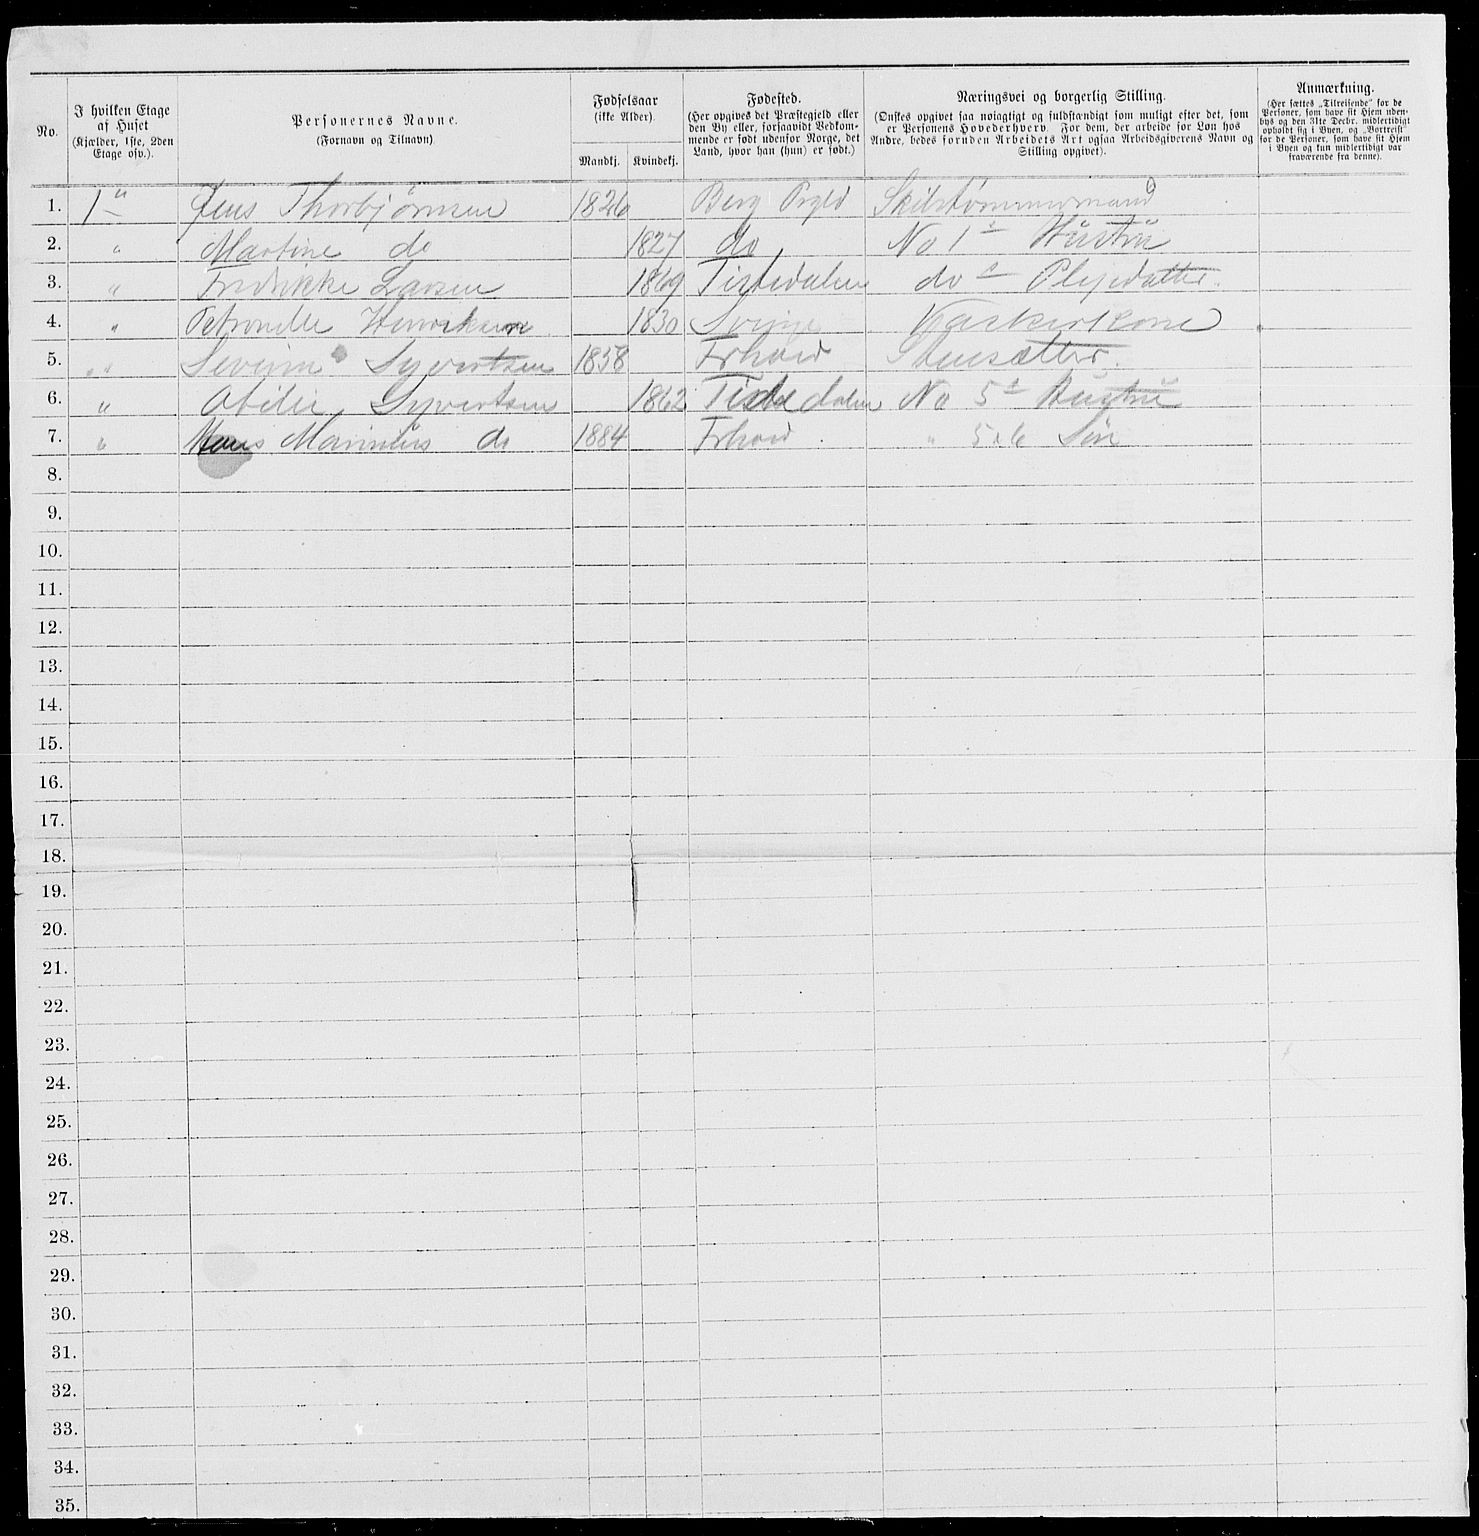 No.
I hvilken Etage
af Huset
(Kjælder, 1ste, 2den
Etage osv.).
Personernes Navne.
(Fornavn og Tilnavn)
Fødselsaar
(ikke Alder).
Mandkj. Kvindekj.
Fødested.
(Her opgives det Præstegjeld eller
den By eller, forsaavidt Vedkom-
mende er født udenfor Norge, det
Land, hvor han (hun) er født.)
Næringsvei og borgerlig Stilling.
(Ønskes opgivet saa nøiagtigt og fuldstændigt som muligt efter det, som
er Personens Hovederhverv. For dem, der arbeide for Løn hos
Andre, bedes foruden Arbeidets Art ogsaa Arbeidsgiverens Navn og
Stilling opgivet).
Anmærkning.
(Her sættes „Tilreisende“ for de
Personer, som have sit Hjem uden-
bys og den 31te Decbr. midlertidigt
opholdt sig i Byen, og „Bortreist“
for de Personer, som have sit Hjem
i Byen og kun midlertidigt var
fraværende fra denne).
1. 1ste Jens Thorbjørnsen 1826 Berg Prgld Skibstømmermand
2. " Martine do 1827 do No 1s Hustru
3. " Fredrikke Larsen 1869 Tistedalen do s Plejedatter.
4. " Petronelle Henriksen 1830 Svinge Vaskerkone
5. " Severin Syvertsen 1858 Frhald
6. " Otilie Syvertsen 1862 Tistedalen No 5s Hustru
7. " Hans Marinius do 1884 Frhald " 5 o 6 Søn
8.
9.
10.
11.
12.
13.
14.
15.
16.
17.
18.
19.
20.
21.
22.
23.
24.
25.
26.
27.
28.
29.
30.
31.
32.
33.
34.
35.